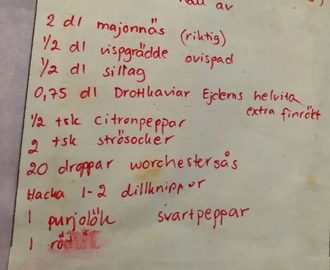 av
2 dl majonnäs (riktig)
1/2 dl vispgrädde ovispad
1/2 dl sillag
0,75 dl Drottkaviar Ejderns helvita
extra finrökt
1/2 tsk citronpeppar
2 tsk strösocker
20 droppar worchestersås
Hacka 1-2 dillknippor
1 purjolök svartpeppar
1